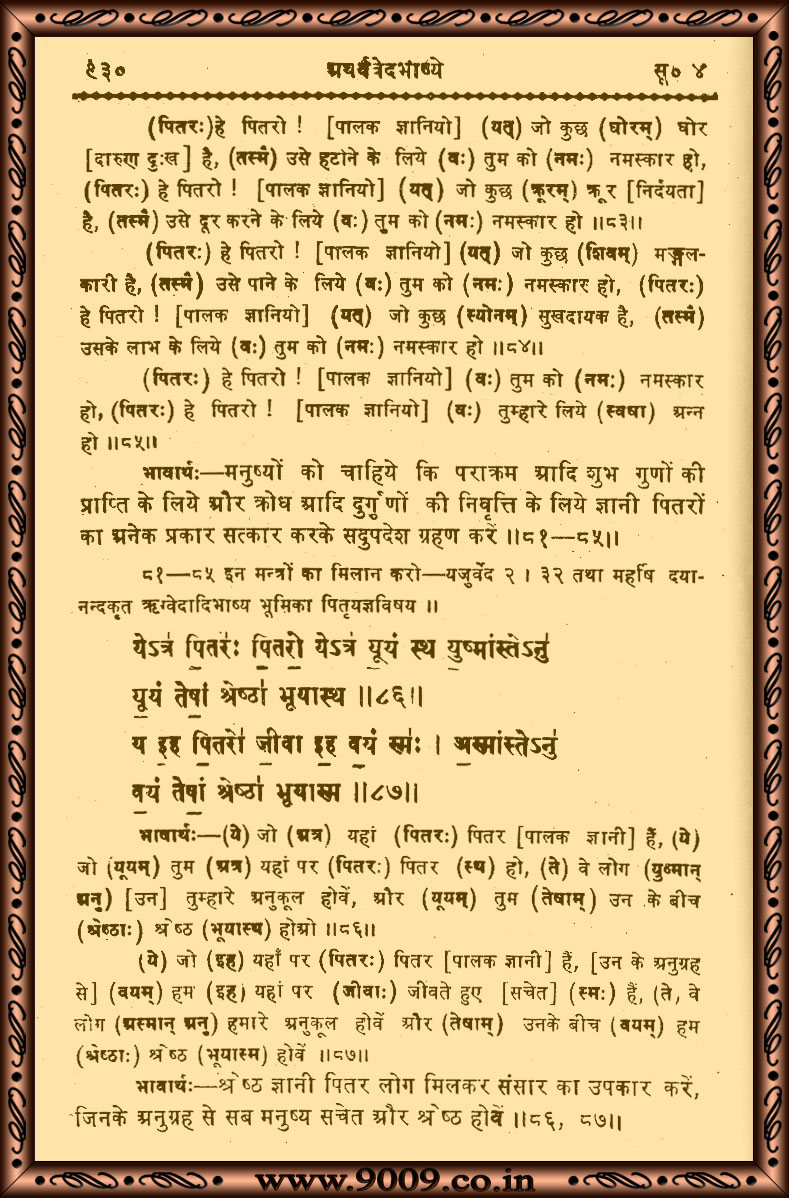 ९३० अथर्ववेदभाष्ये सू० ४
(पितरः) हे पितरो ! [पालक ज्ञानियो] (यत्) जो कुछ (घोरम्) घोर
[दारुण दुःख] है, (तस्मै) उसे हटाने के लिये (वः) तुम को (नमः) नमस्कार हो,
(पितरः) हे पितरो ! [पालक ज्ञानियो] (यत्) जो कुछ (क्रूरम्) क्रूर [निर्दयता]
है, (तस्मै) उसे दूर करने के लिये (वः) तुम को (नमः) नमस्कार हो ॥८३॥
(पितरः) हे पितरो ! [पालक ज्ञानियो] (यत्) जो कुछ (शिवम्) मङ्गल-
कारी है, (तस्मै) उसे पाने के लिये (वः) तुम को (नमः) नमस्कार हो, (पितरः)
हे पितरो ! [पालक ज्ञानियो] (यत्) जो कुछ (स्योनम्) सुखदायक है, (तस्मै)
उसके लाभ के लिये (वः) तुम को (नमः) नमस्कार हो ॥८४॥
(पितरः) हे पितरो ! [पालक ज्ञानियो] (वः) तुम को (नमः) नमस्कार
हो, (पितरः) हे पितरो ! [पालक ज्ञानियो] (वः) तुम्हारे लिये (स्वधा) अन्न
हो ॥८५॥
भावार्थः—मनुष्यों को चाहिये कि पराक्रम आदि शुभ गुणों की
प्राप्ति के लिये और क्रोध आदि दुर्गुणों की निवृत्ति के लिये ज्ञानी पितरों
का अनेक प्रकार सत्कार करके सदुपदेश ग्रहण करें ॥८१—८५॥
८१—८५ इन मन्त्रों का मिलान करो—यजुर्वेद २ । ३२ तथा महर्षि दया-
नन्दकृत ऋग्वेदादिभाष्य भूमिका पितृयज्ञविषय ॥
येऽत्र॑ पि॒तरः॑ पि॒तरो॒ येऽत्र॑ यू॒यं स्थ यु॒ष्मांस्तेऽनु॑
यू॒यं तेषां॒ श्रेष्ठा॑ भूयास्थ ॥८६॥
य इ॒ह पि॒तरो॑ जी॒वा इ॒ह व॒यं स्मः॑ । अ॒स्मांस्तेऽनु॑
व॒यं तेषां॒ श्रेष्ठा॑ भूयास्म ॥८७॥
भावार्थः—(ये) जो (अत्र) यहां (पितरः) पितर [पालक ज्ञानी] हैं, (ये)
जो (यूयम्) तुम (अत्र) यहां पर (पितरः) पितर (स्थ) हो, (ते) वे लोग (युष्मान्
अनु) [उन] तुम्हारे अनुकूल होवें, और (यूयम्) तुम (तेषाम्) उन के बीच
(श्रेष्ठाः) श्रेष्ठ (भूयास्थ) होओ ॥८६॥
(ये) जो (इह) यहाँ पर (पितरः) पितर [पालक ज्ञानी] हैं, [उन के अनुग्रह
से] (वयम्) हम (इह) यहां पर (जीवाः) जीवते हुए [सचेत] (स्मः) हैं, (ते, वे
लोग (अस्मान् अनु) हमारे अनुकूल होवें और (तेषाम्) उनके बीच (वयम्) हम
(श्रेष्ठाः) श्रेष्ठ (भूयास्म) होवें ॥८७॥
भावार्थः—श्रेष्ठ ज्ञानी पितर लोग मिलकर संसार का उपकार करें,
जिनके अनुग्रह से सब मनुष्य सचेत और श्रेष्ठ होवें ॥८६, ८७॥
www.9009.co.in